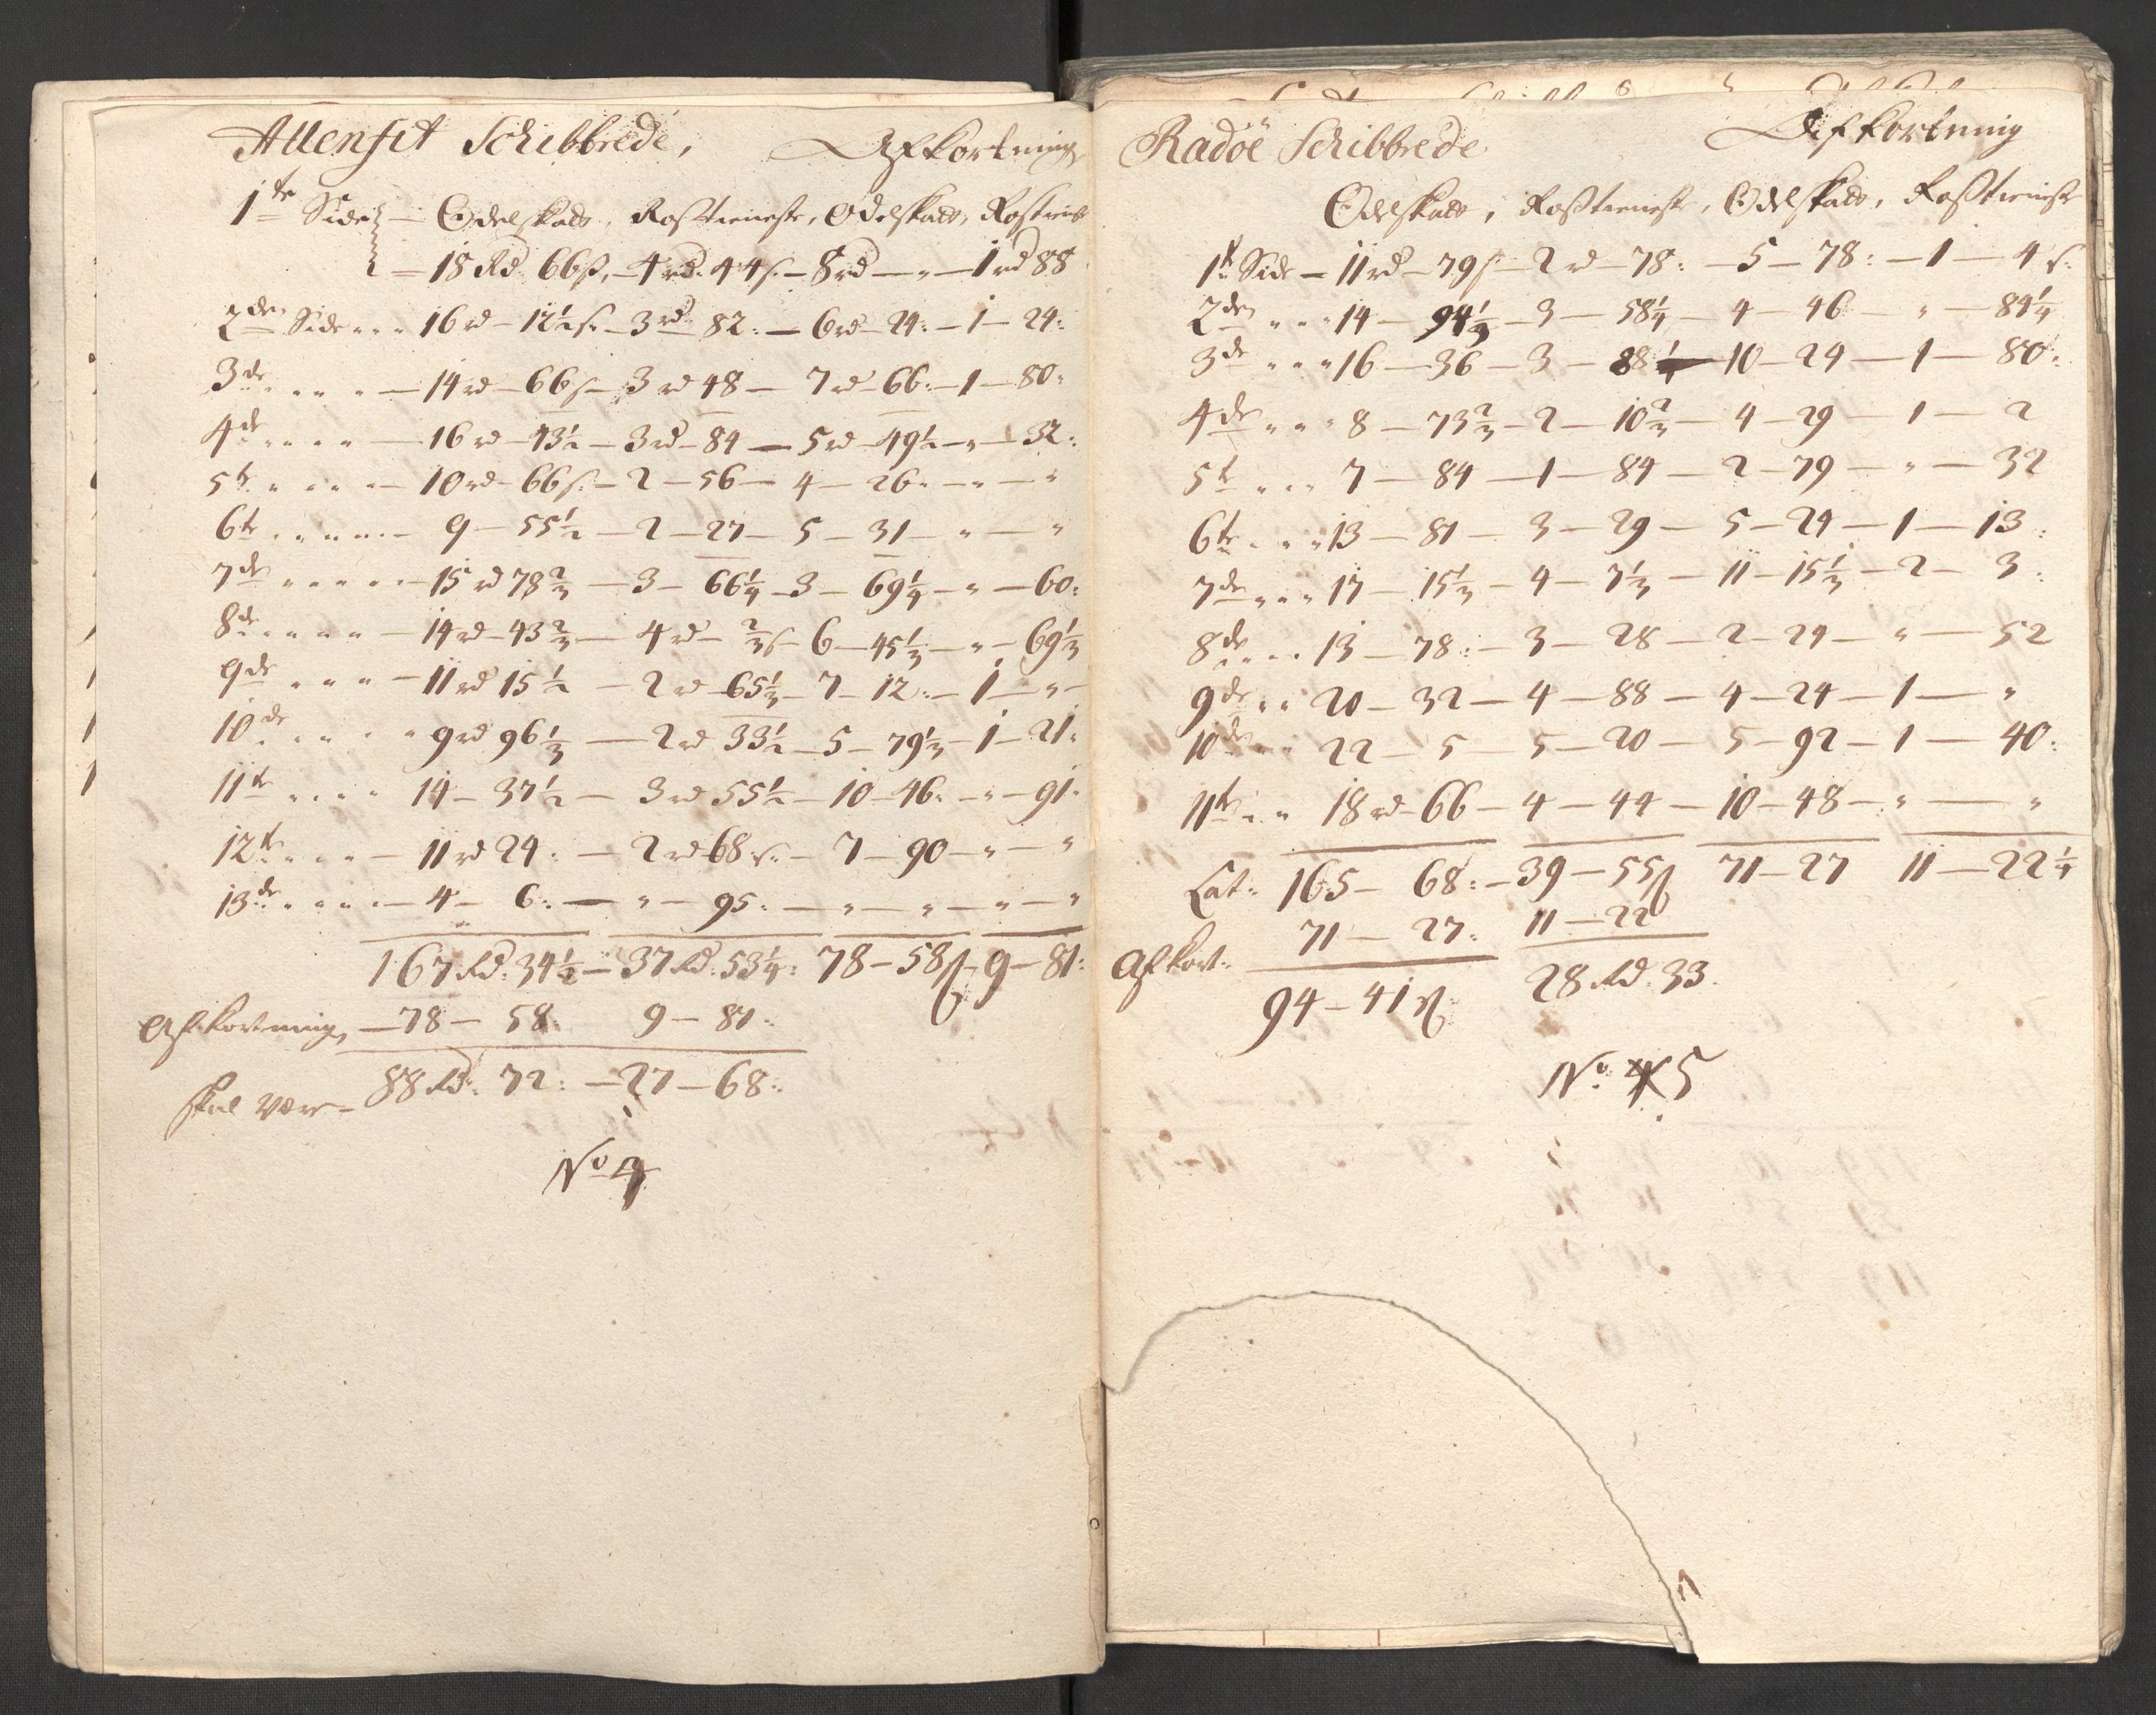 Allenfit Schibbrede, Afkortning
1te Side — Odelskatt, Rostieneste, Odelskatt, Rostienist
— 18 Rd. 66ß, — 4 rd. 44 s. — 8 rd — " — 1 rd 88
2den Side " " " 16 rd — 12½ s. — 3 rd 82: — 6 rd — 24: — 1 — 24:
3de " " " " — 14 rd — 66 s — 3 rd 48 — 7 rd — 66: — 1 — 80:
4de " " " " — 16 rd — 43½ — 3 rd — 84 — 5 rd — 49½ — " — 32:
5te " " " " — 10 rd — 66 s. — 2 — 56 — 4 — 26 " — " — "
6te " " " " — 9 — 55½ — 2 — 27 — 5 — 31 — " — "
7de " " " " — 15 rd 78⅔ — 3 — 66¼ — 3 — 69¼ — " — 60:
8de " " " " — 14 rd — 43⅔ — 4 rd — ⅔ s — 6 — 45⅓ — " — 69⅓
9de " " " — 11 rd 15½ — 2 rd — 65⅓ — 7 — 12: — 1 — " —
10de " " " " 9 rd 96⅓ — 2 rd 33½ — 5 — 79⅓ — 1 — 21:
11te " " " " 14 — 37½ — 3 rd 55½ — 10 — 46: — " — 91:
12te " " " — 11 rd 24: — 2 rd 68 s. — 7 — 90 — " — "
13de " " " " — 4 — 6: — " — 95: — " — " — " — "
167 Rd: 34½ — 37 Rd: 53¼: 78 — 58ß 9 — 81:
Afkortning, — 78 — 58: 9 — 81:
skal være — 88 Rd: 72: — 27 — 68:
No 4
Radöe Schibbrede Afkortning
Odelskatt, Rostieneste, Odelskatt, Rostienist
1te Side — 11 rd — 79 s. — 2 rd — 78: — 5 — 78: — 1 — 4 s.
2den " " " 14 — 94⅓ — 3 — 58¼ — 4 — 46 " — 84¼
3de " " " 16 — 36 — 3 — 88: — 10 — 24 — 1 — 80:
4de " " " 8 — 73⅔ — 2 — 10⅔ — 4 — 29 — 1 — 2
5te " " " 7 — 84 — 1 — 84 — 2 — 79 — " — 32
6te " " " 13 — 81 — 3 — 29 — 5 — 24 — 1 — 13:
7de " " " 17 — 15⅓ — 4 — 7⅓ — 11 — 15⅓ — 2 — 3:
8de " " " 13 — 78: — 3 — 28 — 2 — 24 — " — 52
9de " " 20 — 32 — 4 — 88 — 4 — 24 — 1 — "
10de " " 22 — 5 — 5 — 20 — 5 — 92 — 1 — 40:
11te " " 18 rd — 66 — 4 — 44 — 10 — 48 — " — "
Lat: 165 — 68: — 39 — 55ß 71 — 27 11 — 22¼
Afkort: 71 — 27: 11 — 22
94 — 41ß: 28 Rd. 33.
No: 5